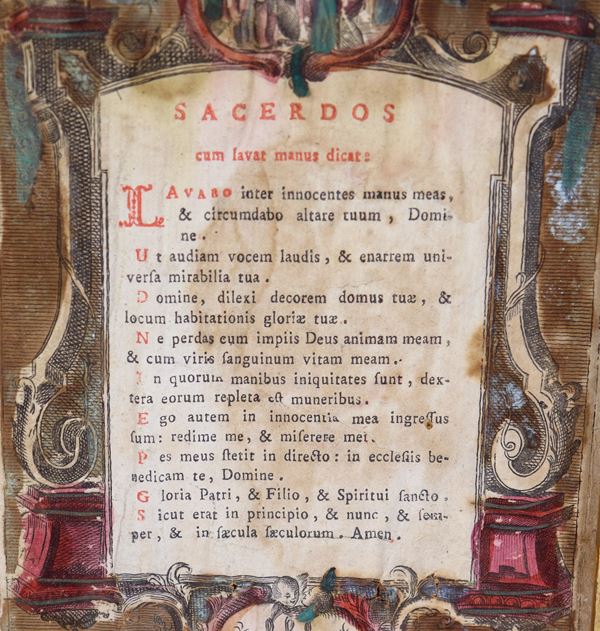 SACERDOS
cum lavat manus dicat:
LAVABO inter innocentes manus meas,
& circumdabo altare tuum, Domi-
ne.
Ut audiam vocem laudis, & enarrem uni-
verſa mirabilia tua.
Domine, dilexi decorem domus tuæ, &
locum habitationis gloriæ tuæ.
Ne perdas cum impiis Deus animam meam,
& cum viris ſanguinum vitam meam.
In quorum manibus iniquitates ſunt, dex-
tera eorum repleta eſt muneribus.
Ego autem in innocentia mea ingreſſus
ſum: redime me, & miſerere mei.
Pes meus ſtetit in directo: in eccleſiis be-
nedicam te, Domine.
Gloria Patri, & Filio, & Spiritui ſancto.
Sicut erat in principio, & nunc, & ſem-
per, & in ſæcula ſæculorum. Amen.